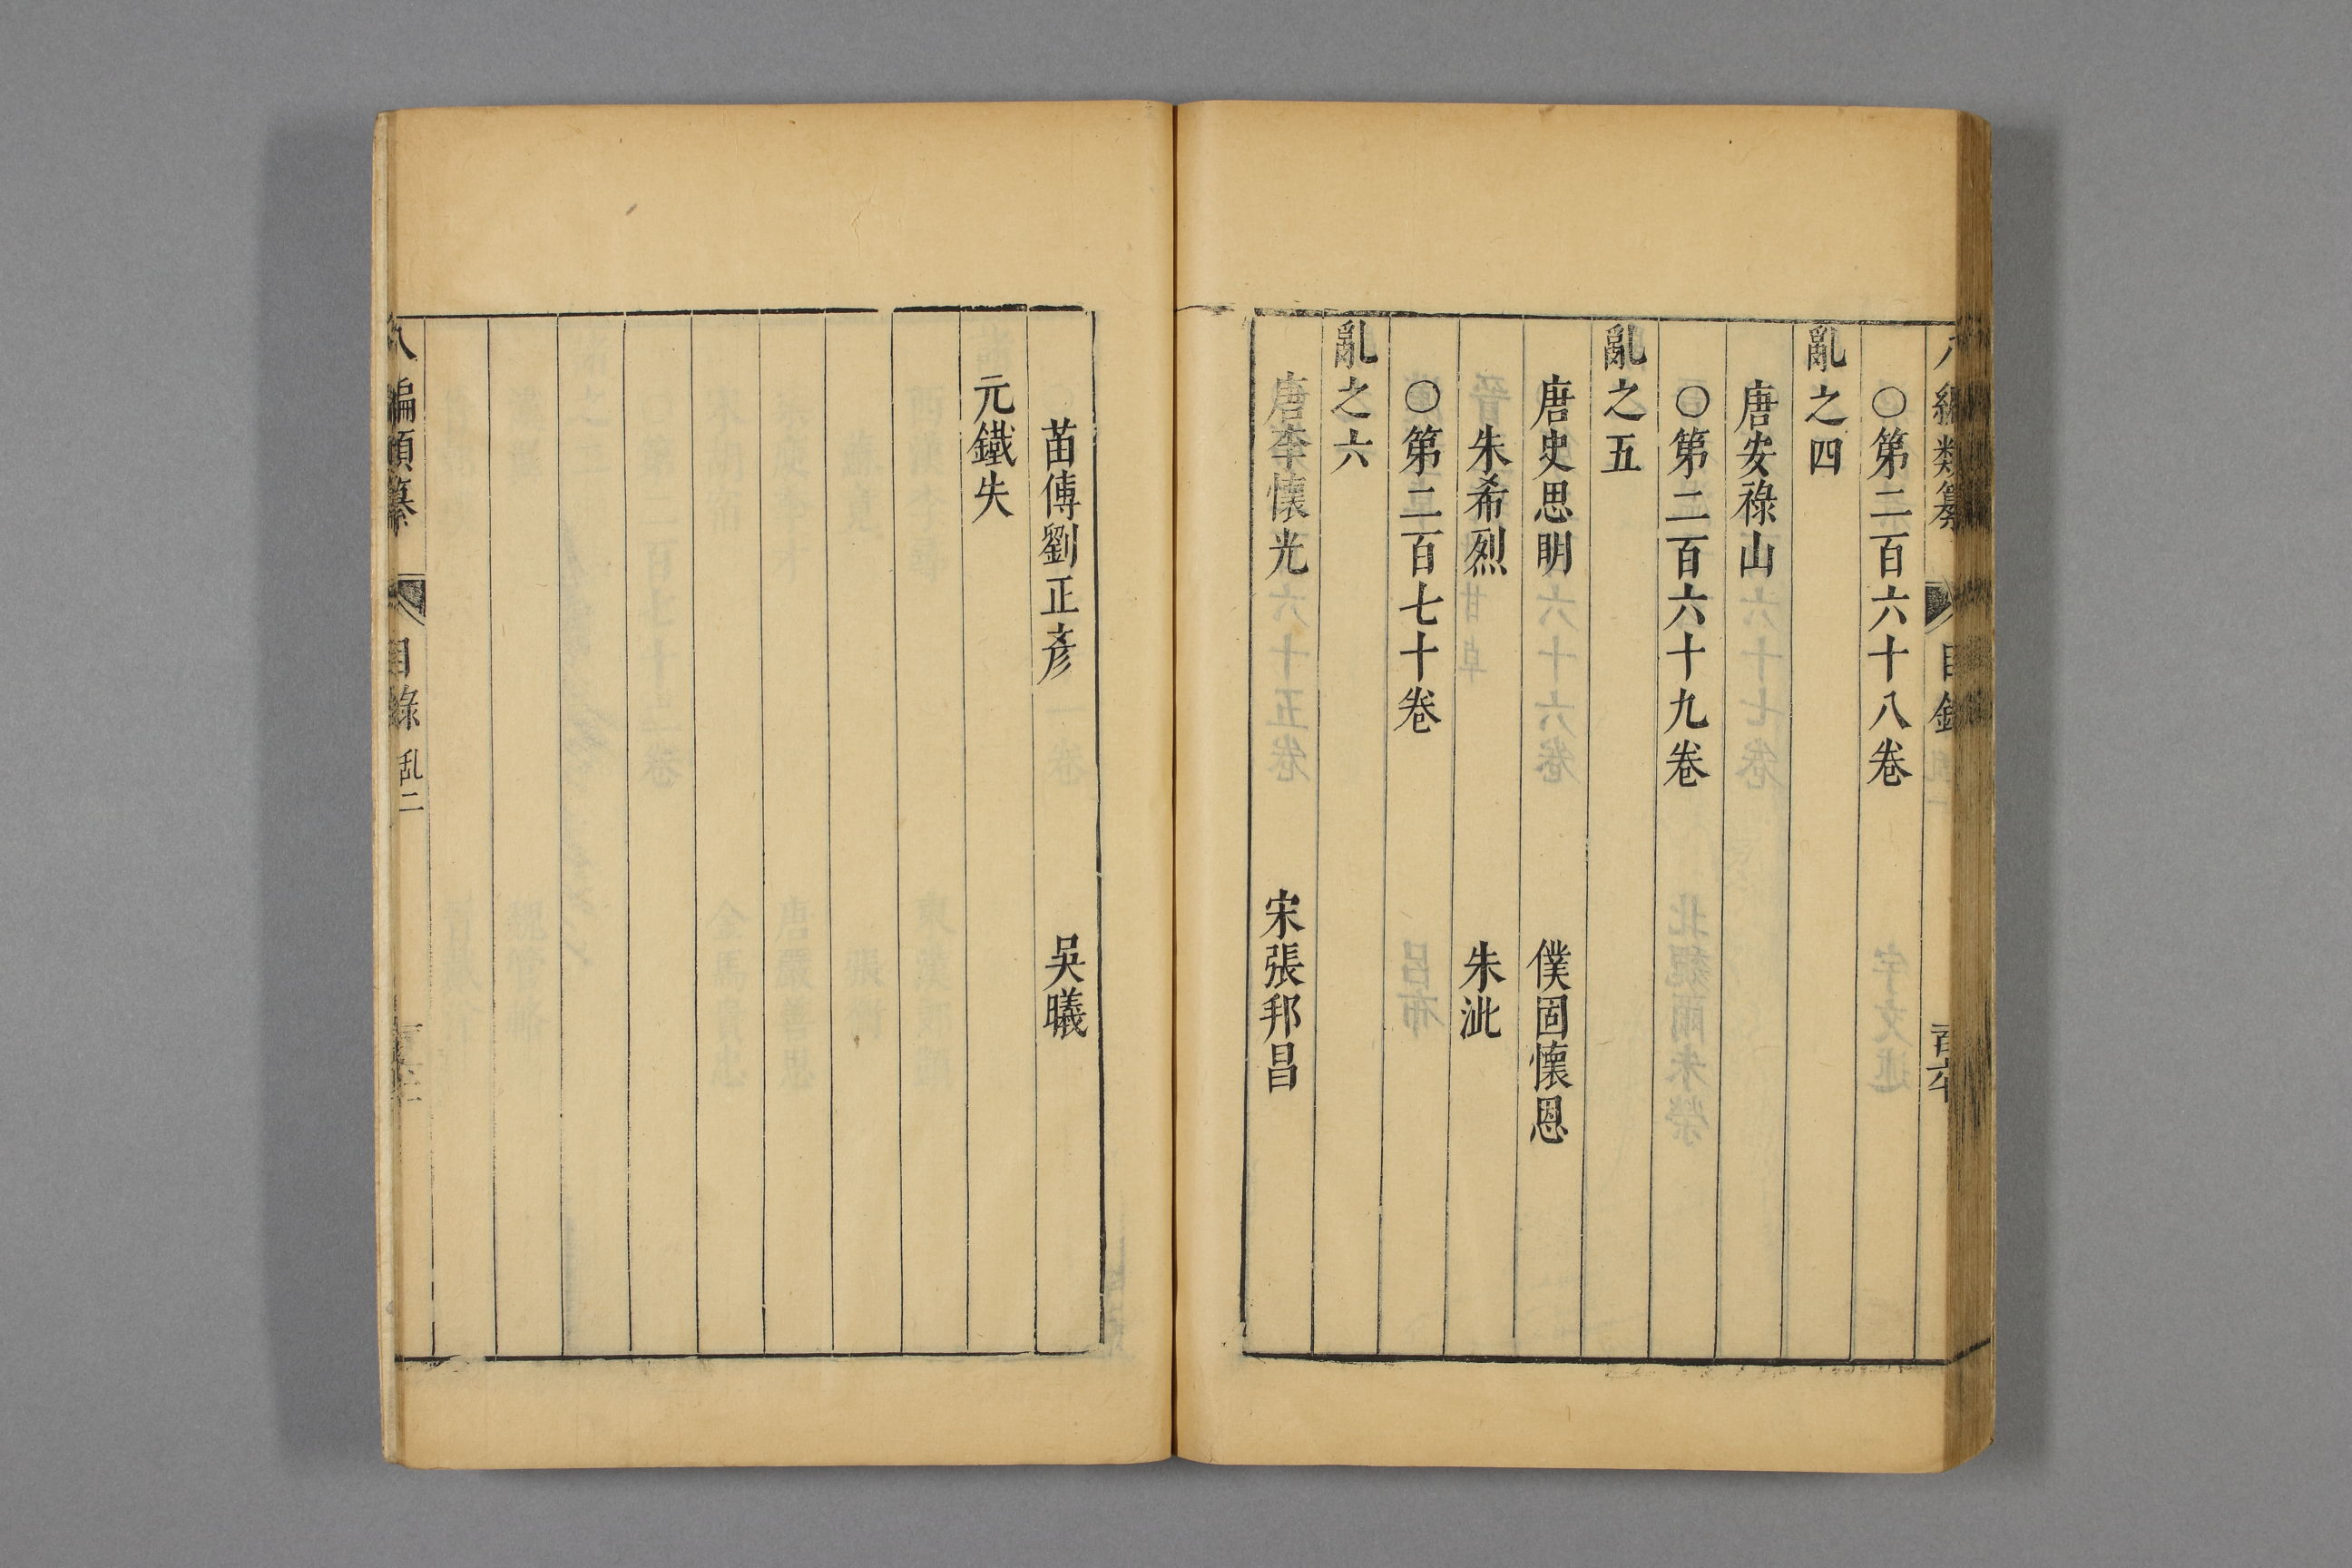 ○第二百六十八卷
亂之四
唐安祿山
○第二百六十九卷
亂之五
唐史思明 僕固懷恩
朱希烈 朱泚
○第二百七十卷
亂之六
唐李懷光 宋張邦昌
苗傅劉正彥 吳曦
元鐵失
八編類纂 目錄 乱二